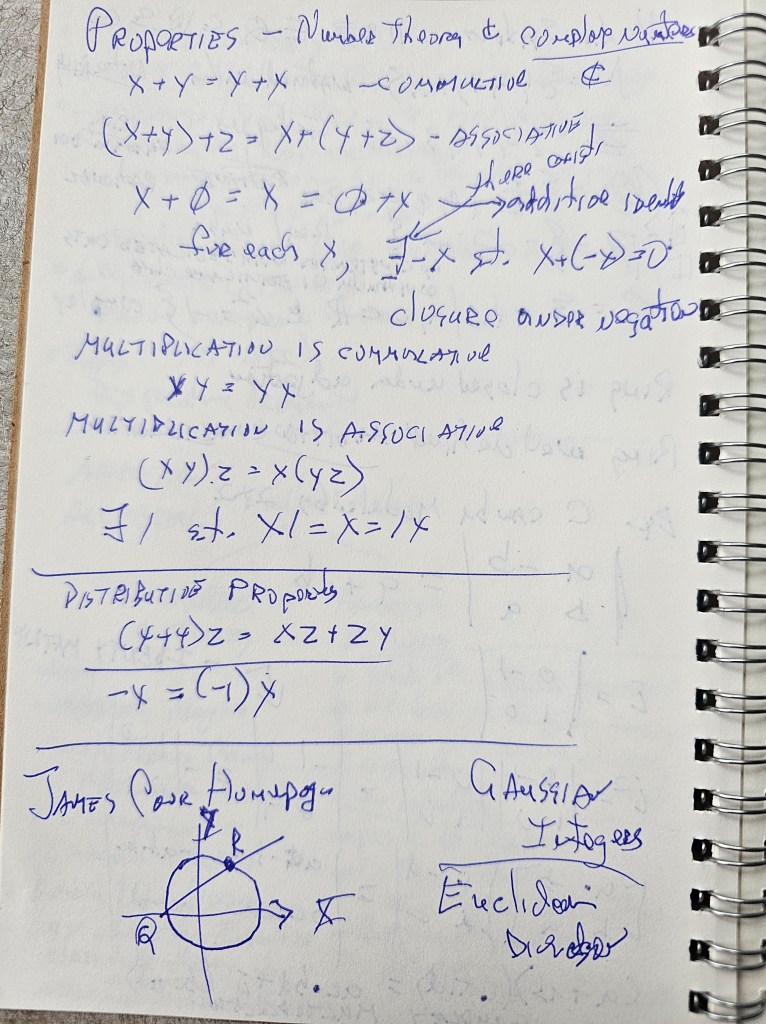 PROPERTIES – Number Theory & Complex Numbers
x + y = y + x – COMMUTATIVE ℂ
(x+y)+z = x+(y+z) – ASSOCIATIVE
there exists
x + 0 = x = 0 + x additive identity
for each x, ∃ -x st. x+(-x)=0
CLOSURE UNDER NEGATION
MULTIPLICATION IS COMMUTATIVE
xy = yx
MULTIPLICATION IS ASSOCIATIVE
(xy)z = x(yz)
∃ 1 st. x1 = x = 1x
DISTRIBUTIVE PROPERTY
(x+y)z = xz + zy
-x = (-1)x
JAMES
GAUSSIAN
Integers
Y
R
X
Q
Euclidean